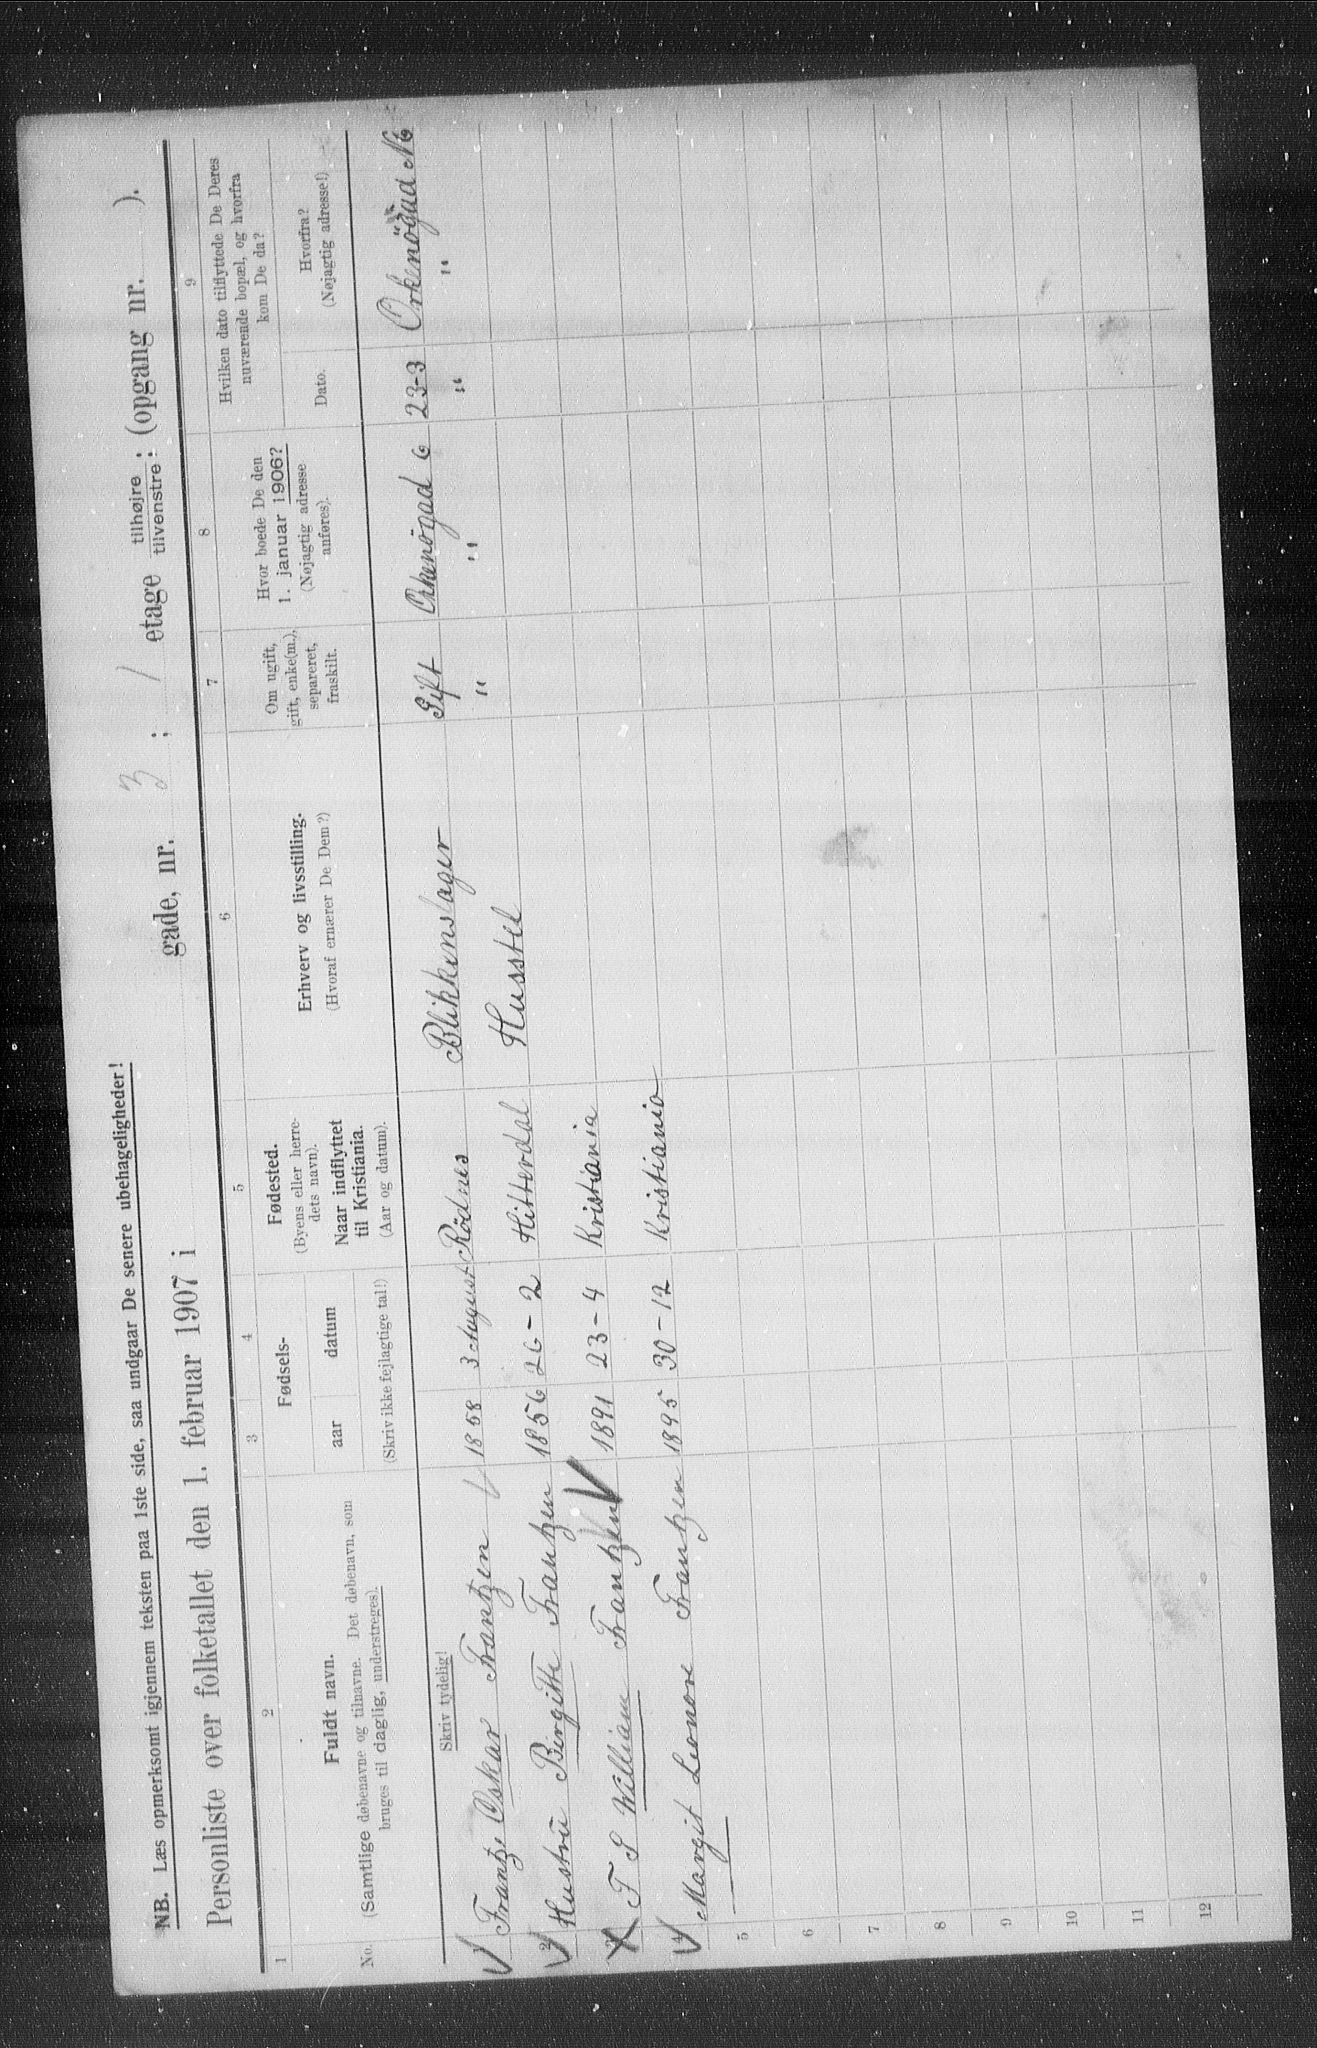 NB. Læs opmerksomt igjennem teksten paa 1ste side, saa undgaar De senere ubehageligheder!
Personliste over folketallet den 1. februar 1907 i gade, nr. 3 ; 1 etage tilhøjre tilvenstre : (opgang nr. ).
1 2 3 4 5 6 7 8 9
No.
Fuldt navn.
(Samtlige døbenavne og tilnavne. Det døbenavn, som
bruges til daglig, understreges).
Fødsels-
aar datum
(Skriv ikke fejlagtige tal!)
Fødested.
(Byens eller herre-
dets navn).
Naar indflyttet
til Kristiania.
(Aar og datum).
Erhverv og livsstilling.
(Hvoraf ernærer De Dem?)
Om ugift,
gift, enke(m.),
separeret,
fraskilt.
Hvor boede De den
1. januar 1906?
(Nøjagtig adresse
anføres).
Hvilken dato tilflyttede De Deres
nuværende bopæl, og hvorfra
kom De da?
Dato.
Hvorfra?
(Nøjagtig adresse!)
Skriv tydelig!
Frantz Oskar Frantzen 1858 3 August Rödnes Blikkenslager Gift Orkenögad 6 23-3 Orkenögad No 6
2 Hustru Bergitte Frantzen 1856 26-2 Hitterdal Husstel " " " "
3 F S William Frantzen 1891 23-4 Kristiania
4 Margit Leonore Frantzen 1895 30-12 Kristiania
5
6
7
8
9
10
11
12